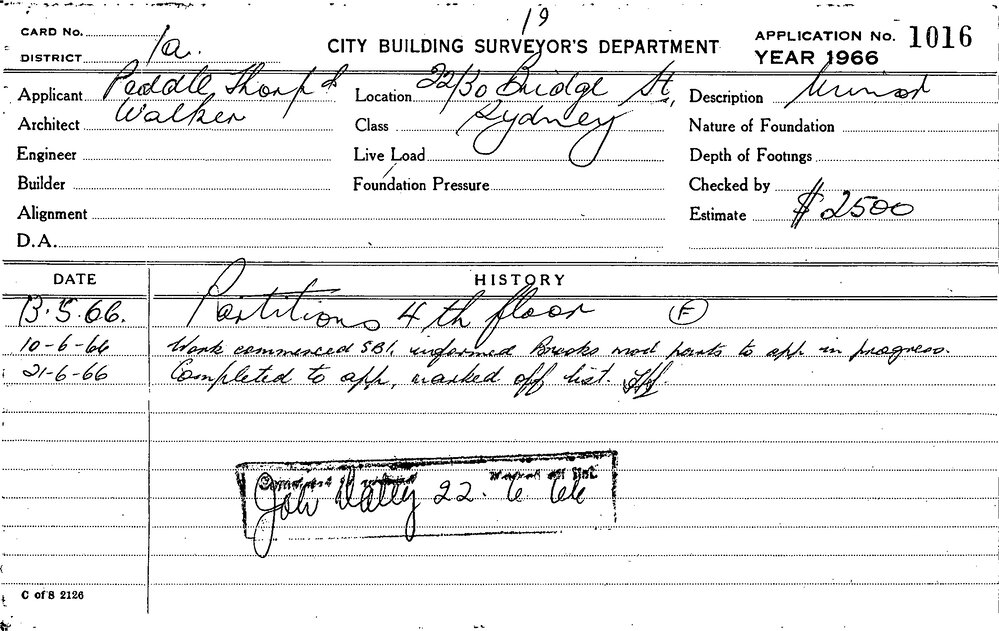 19
CARD No.
DISTRICT 1a.
CITY BUILDING SURVEYOR'S DEPARTMENT
APPLICATION No. 1016
YEAR 1966
Applicant Peddle Thorp &
Architect Walker
Engineer
Builder
Alignment
D.A.
Location 22/30 Bridge St,
Class Sydney
Live Load
Foundation Pressure
Description Minor
Nature of Foundation
Depth of Footings
Checked by
Estimate $2500
DATE HISTORY
13.5.66. Partitions 4th floor F
10-6-66 Work commenced SBI, informed Brooks mod parts to app in progress.
21-6-66 Completed to app, marked off list.
marked off list
John 22. 6 66
C of S 2126